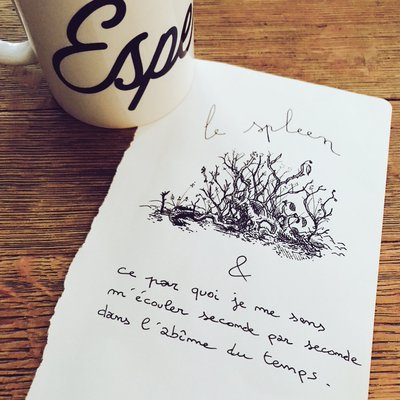 Espe
le spleen
&
ce par quoi je me sens
m'écouler seconde par seconde
dans l'abîme du temps.